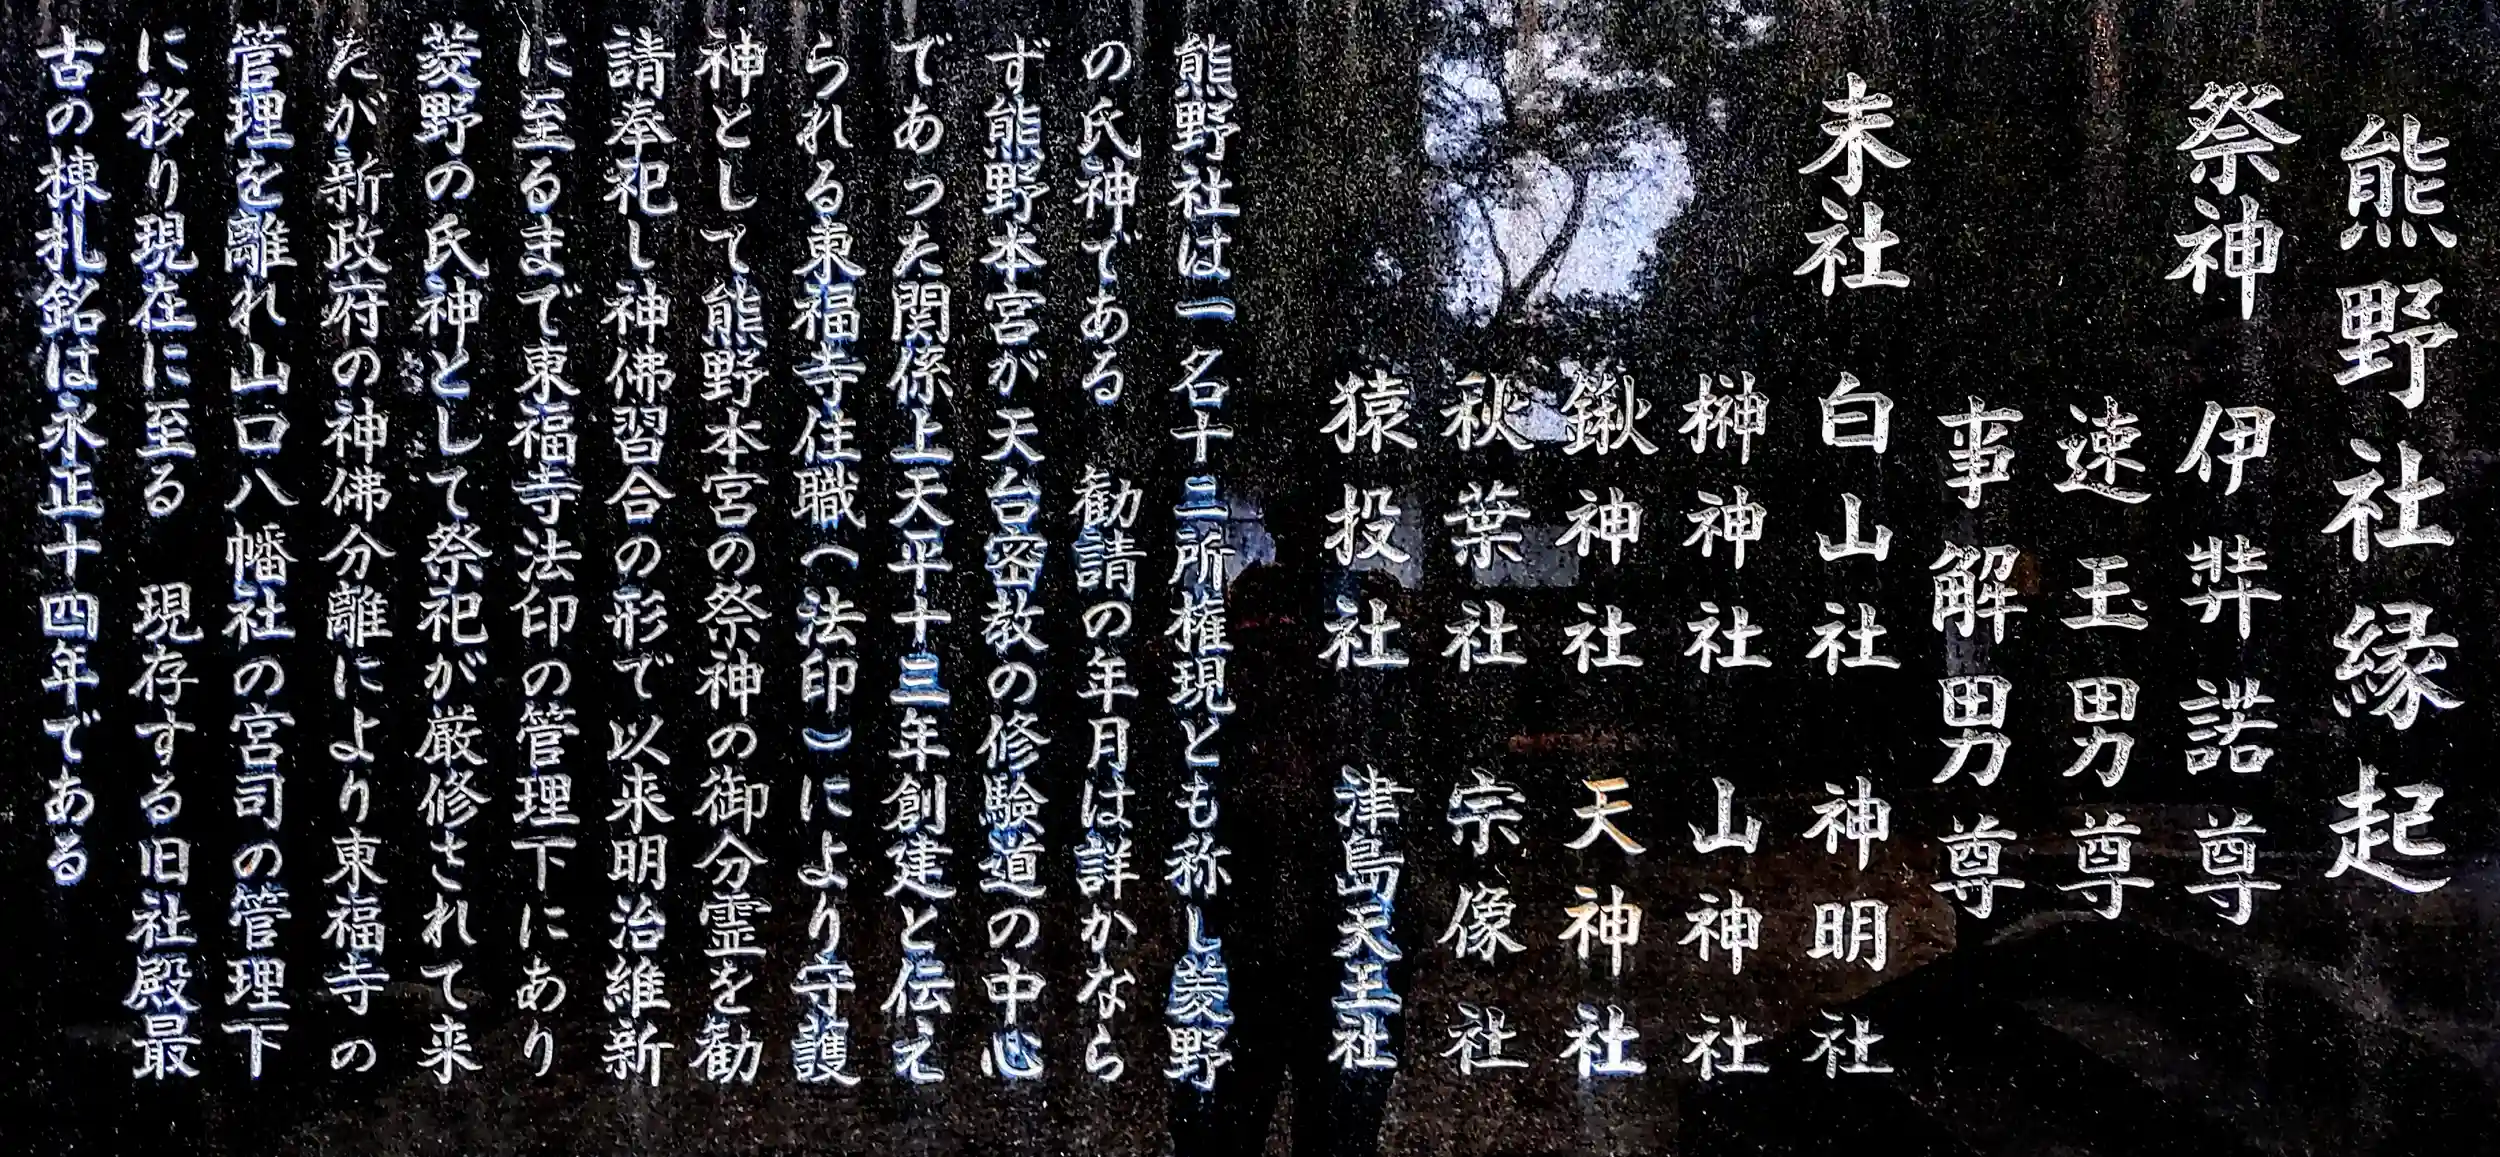 熊野社縁起
祭神 伊弉諾尊
速玉男尊
事解男尊
末社 白山社 神明社
榊神社 山神社
鍬神社 天神社
秋葉社 宗像社
猿投社 津島天王社
熊野社は一名十二所権現とも称し菱野
の氏神である 勧請の年月は詳かなら
ず熊野本宮が天台密教の修験道の中心
であった関係上天平十三年創建と伝え
られる東福寺住職(法印)により守護
神として熊野本宮の祭神の御分霊を勧
請奉祀し神佛習合の形で以来明治維新
に至るまで東福寺法印の管理下にあり
菱野の氏神として祭祀が厳修されて来
たが新政府の神佛分離により東福寺の
管理を離れ山口八幡社の宮司の管理下
に移り現在に至る 現存する旧社殿最
古の棟札銘は永正十四年である